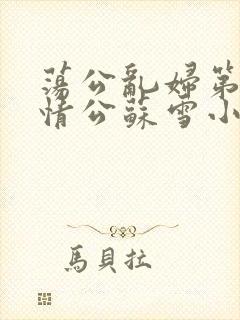 蕩公亂婦第
情公蘇雪小
馬貝拉